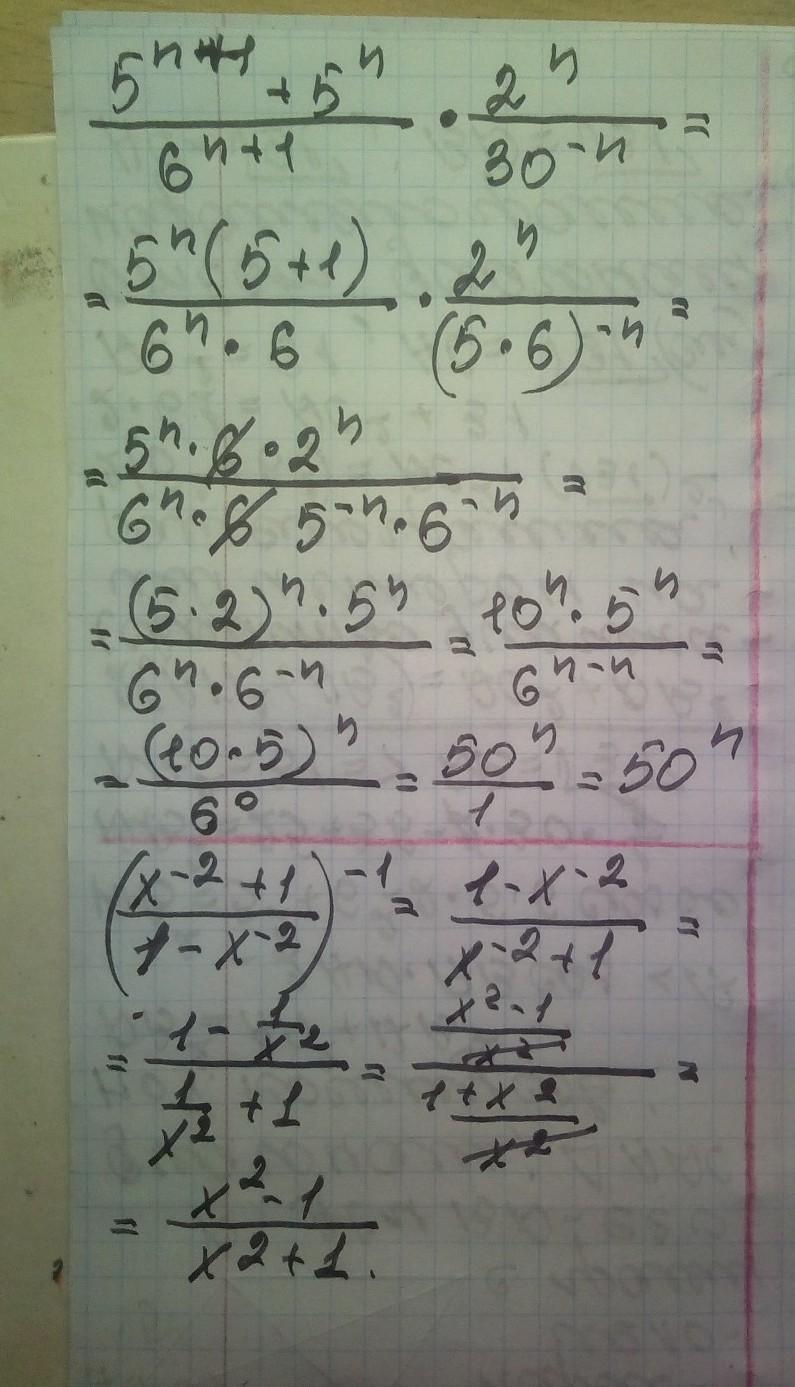 (5^(n+1) + 5^n)/(6^(n+1)) · (2^n)/(30^(-n)) =
= (5^n(5+1))/(6^n · 6) · (2^n)/((5·6)^(-n)) =
= (5^n · 6 · 2^n)/(6^n · 6 5^(-n) · 6^(-n)) =
= ((5·2)^n · 5^n)/(6^n · 6^(-n)) = (10^n · 5^n)/(6^(n-n)) =
= ((10·5)^n)/(6^0) = (50^n)/1 = 50^n
((x^(-2) + 1)/(1 - x^(-2)))^(-1) = (1 - x^(-2))/(x^(-2) + 1) =
= (1 - 1/x^2)/(1/x^2 + 1) = ((x^2 - 1)/x^2)/((1 + x^2)/x^2) =
= (x^2 - 1)/(x^2 + 1).